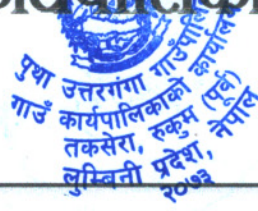 पुथा उत्तरगंगा गाउँपालि
गाउँ कार्यपालिकाको कार्यालय
तकसेरा, रुकुम (पूर्व)
लुम्बिनी प्रदेश, नेपाल
२०७३